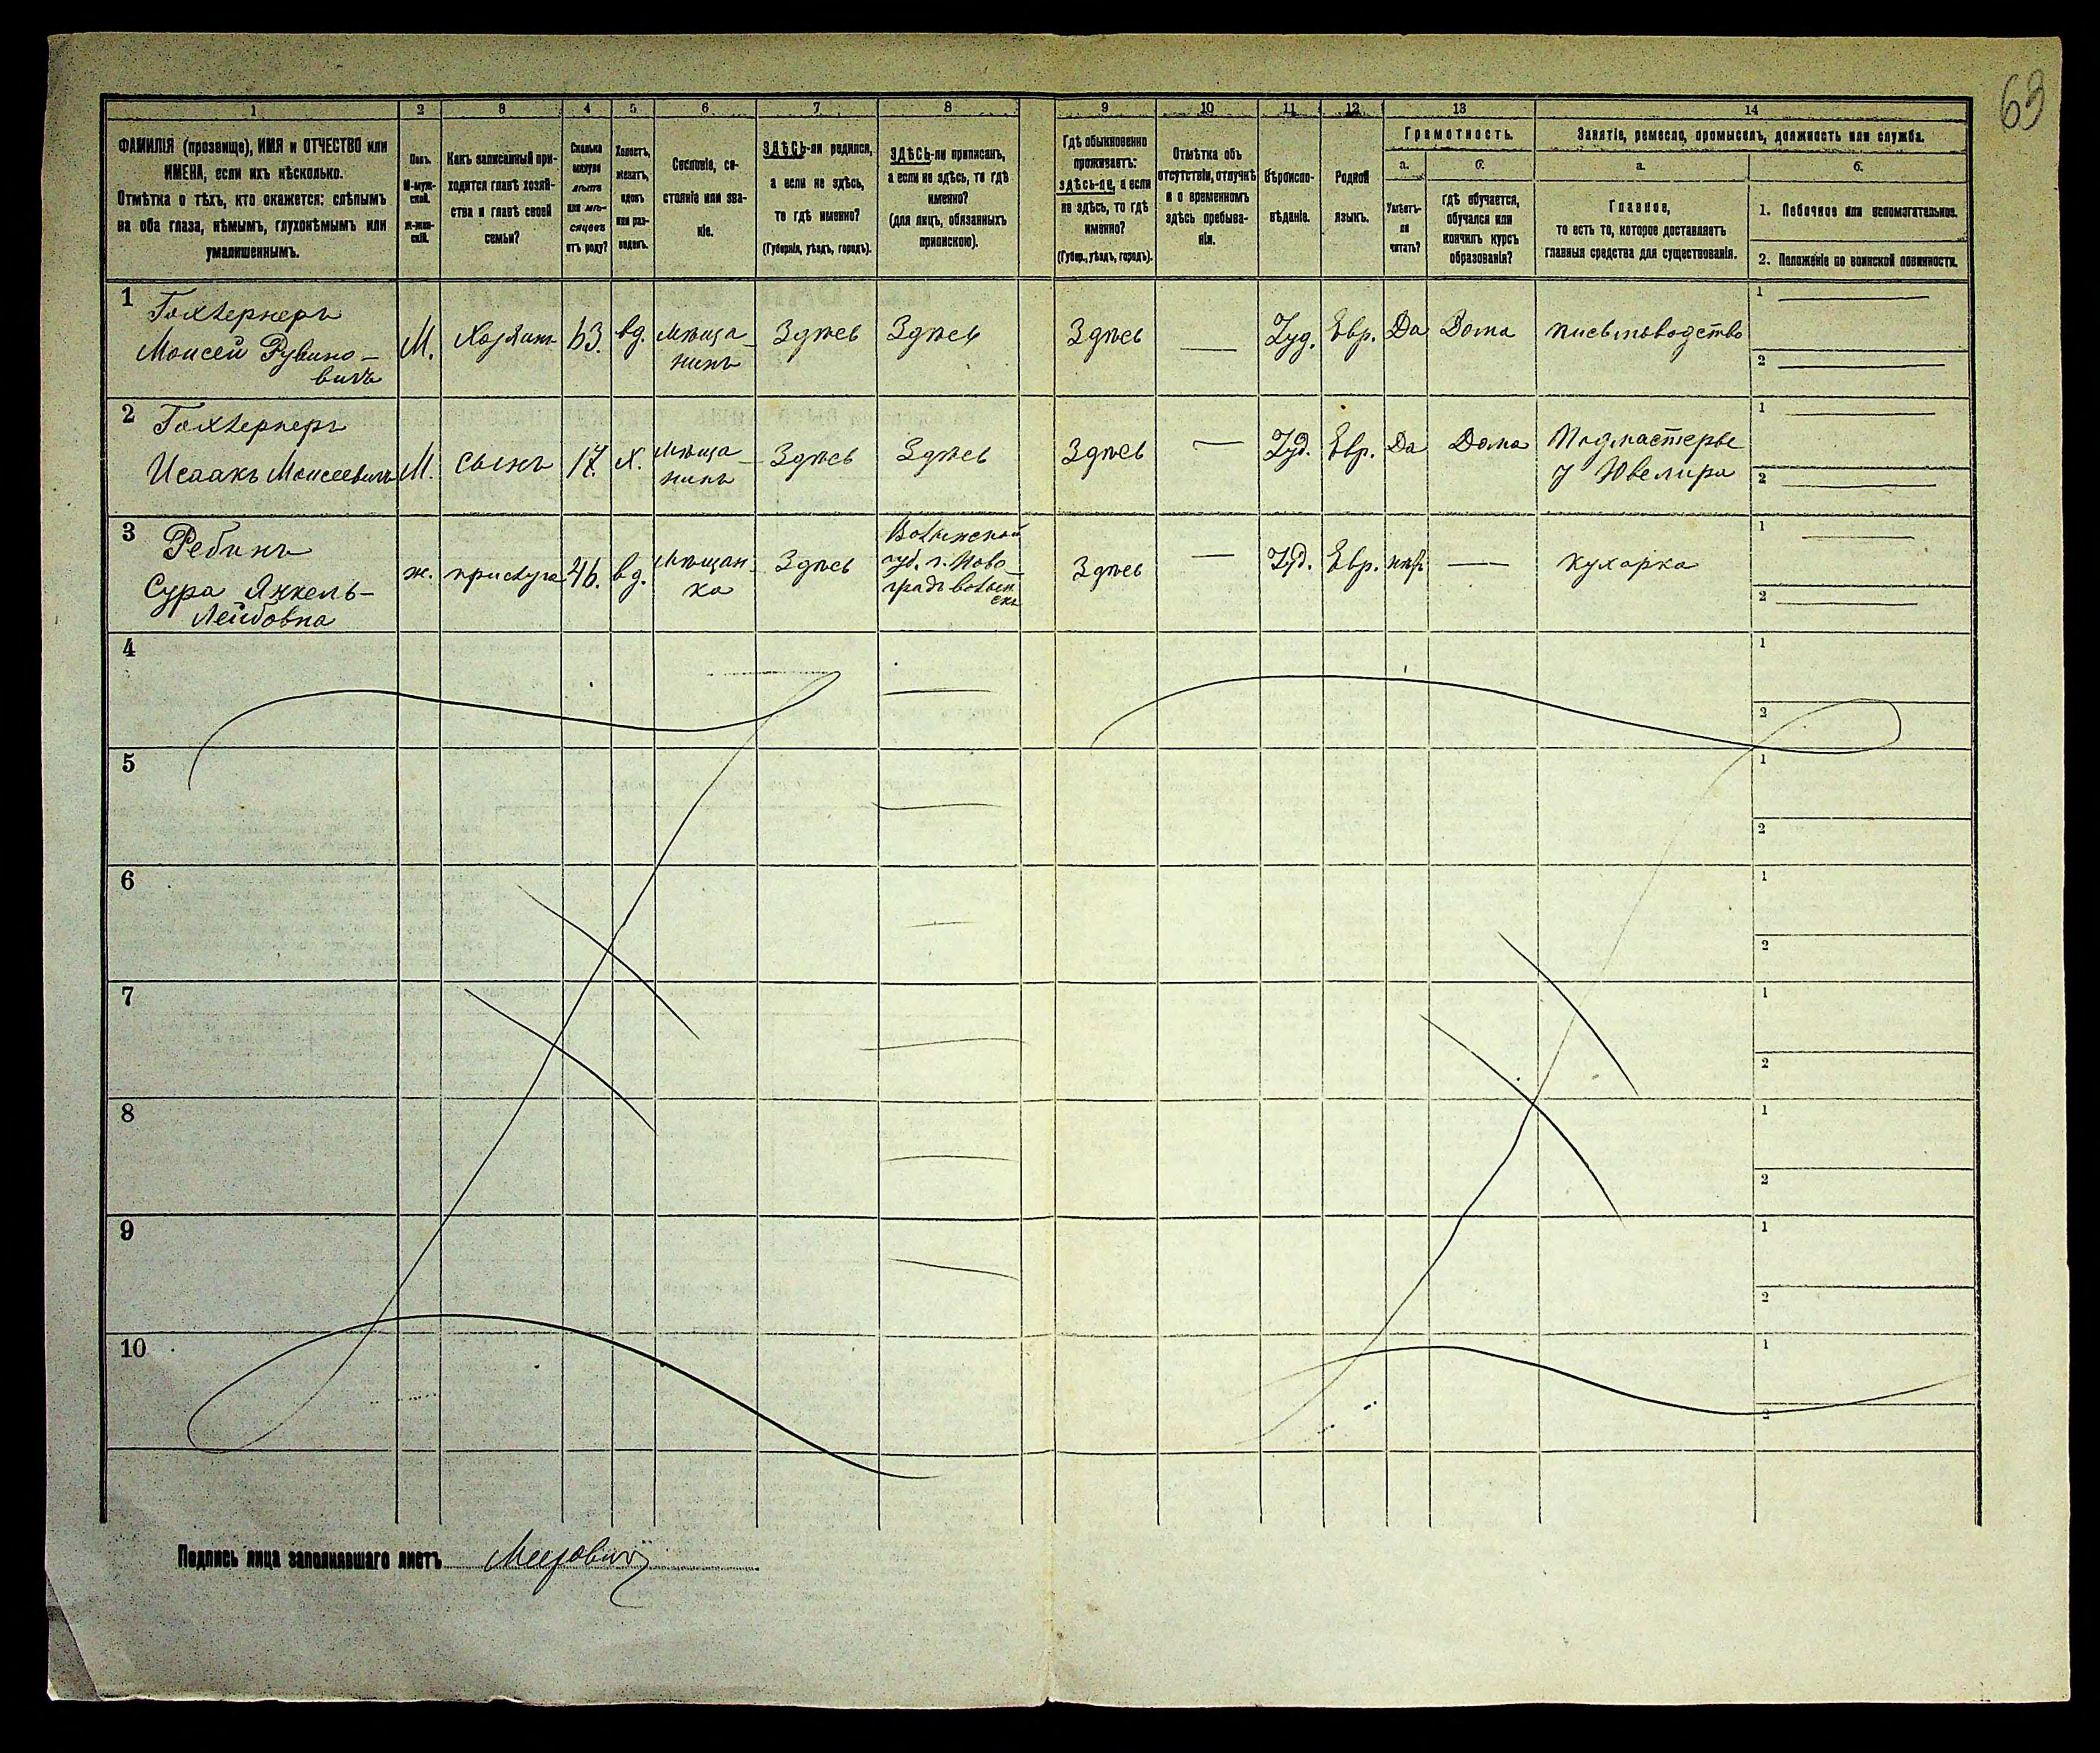 63
1 2 3 4 5 6 7 8 9 10 11 12 13 14
ФАМИЛІЯ (прозвище), ИМЯ и ОТЧЕСТВО или
ИМЕНА, если ихъ нѣсколько.
Отмѣтка о тѣхъ, кто окажется: слѣпымъ
на оба глаза, нѣмымъ, глухонѣмымъ или
умалишеннымъ.
Полъ.
М-муж-
ской.
Ж-жен-
скій.
Какъ записанный при-
ходится главѣ хозяй-
ства и главѣ своей
семьи?
Сколько
минуло
лѣтъ
или мѣ-
сяцевъ
отъ роду?
Холостъ,
женатъ,
вдовъ
или раз-
веденъ.
Сословіе, со-
стояніе или зва-
ніе.
ЗДѢСЬ-ли родился,
а если не здѣсь,
то гдѣ именно?
(Губернія, уѣздъ, городъ).
ЗДѢСЬ-ли приписанъ,
а если не здѣсь, то гдѣ
именно?
(для лицъ, обязанныхъ
припискою).
Гдѣ обыкновенно
проживаетъ:
здѣсь-ли, а если
не здѣсь, то гдѣ
именно?
(Губер., уѣздъ, городъ).
Отмѣтка объ
отсутствіи, отлучкѣ
и о временномъ
здѣсь пребыва-
ніи.
Вѣроиспо-
вѣданіе.
Родной
языкъ.
Грамотность.
а.
Умѣетъ-
ли
читать?
б.
гдѣ обучается,
обучался или
кончилъ курсъ
образованія?
Занятіе, ремесло, промыселъ, должность или служба.
а.
Главное,
то есть то, которое доставляетъ
главныя средства для существованія.
б.
1. Побочное или вспомогательное.
2. Положеніе по воинской повинности.
1
Гохбернеръ
Моисей Рувино-
вичъ
М.
Хозяинъ
63.
вд.
мѣща-
нинъ
Здѣсь
Здѣсь
Здѣсь
—
Іуд.
Евр.
Да
Дома
письмоводство
1 —
2 —
2
Исаакъ Моисеевичъ
М.
сынъ
17.
х.
мѣща-
нинъ
Здѣсь
Здѣсь
Здѣсь
—
Іуд.
Евр.
Да
Дома
Подмастерье
у Ювелира
1 —
2 —
3
Сура Янкель-
Лейбовна
ж.
прислуга
46.
вд.
мѣщан-
ка
Здѣсь
Волынской
губ. г. Ново-
градъ волын
скъ
Здѣсь
—
Іуд.
Евр.
нѣтъ
—
кухарка
1 —
2 —
4
1
2
5
1
2
6
1
2
7
1
2
8
1
2
9
1
2
10
1
2
Подпись лица заполнявшаго листъ